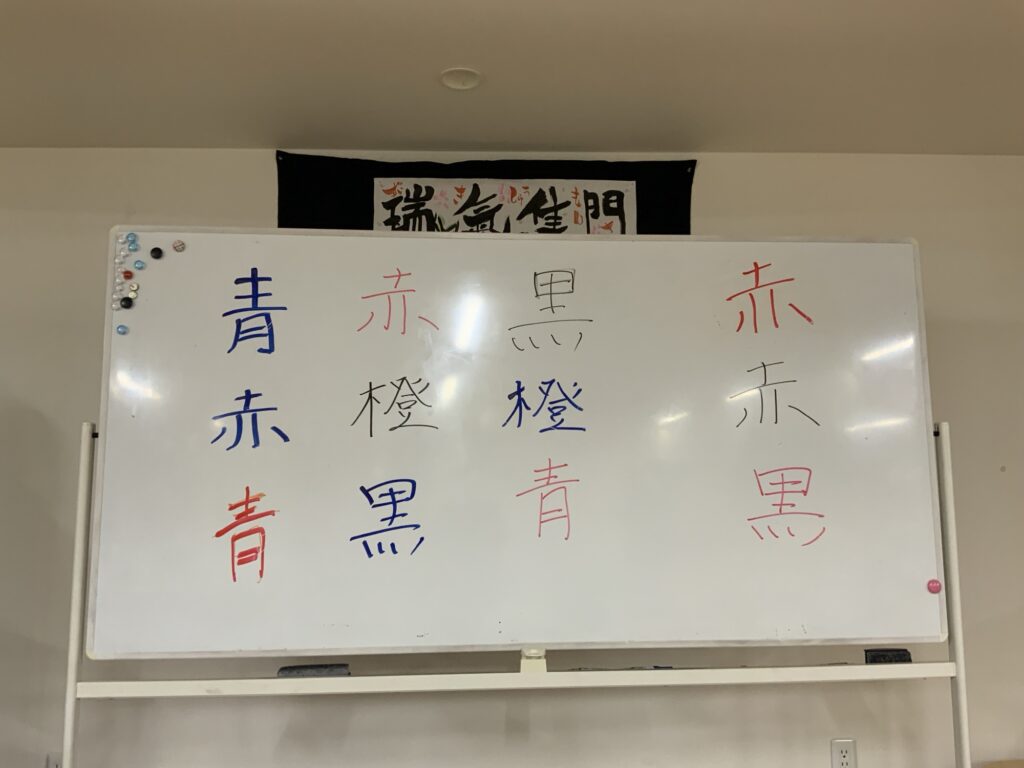 瑞氣集門
青 赤 黒 赤
赤 橙 橙 赤
青 黒 青 黒